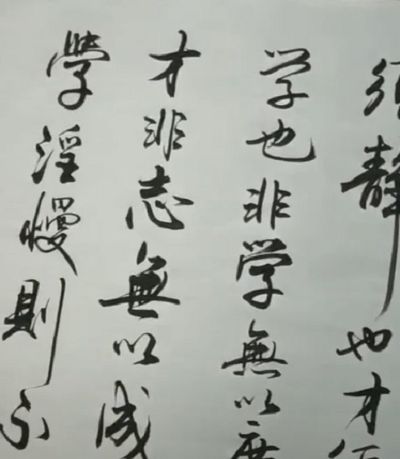 須静也才須
学也非学無以廣
才非志無以成
學淫慢則不